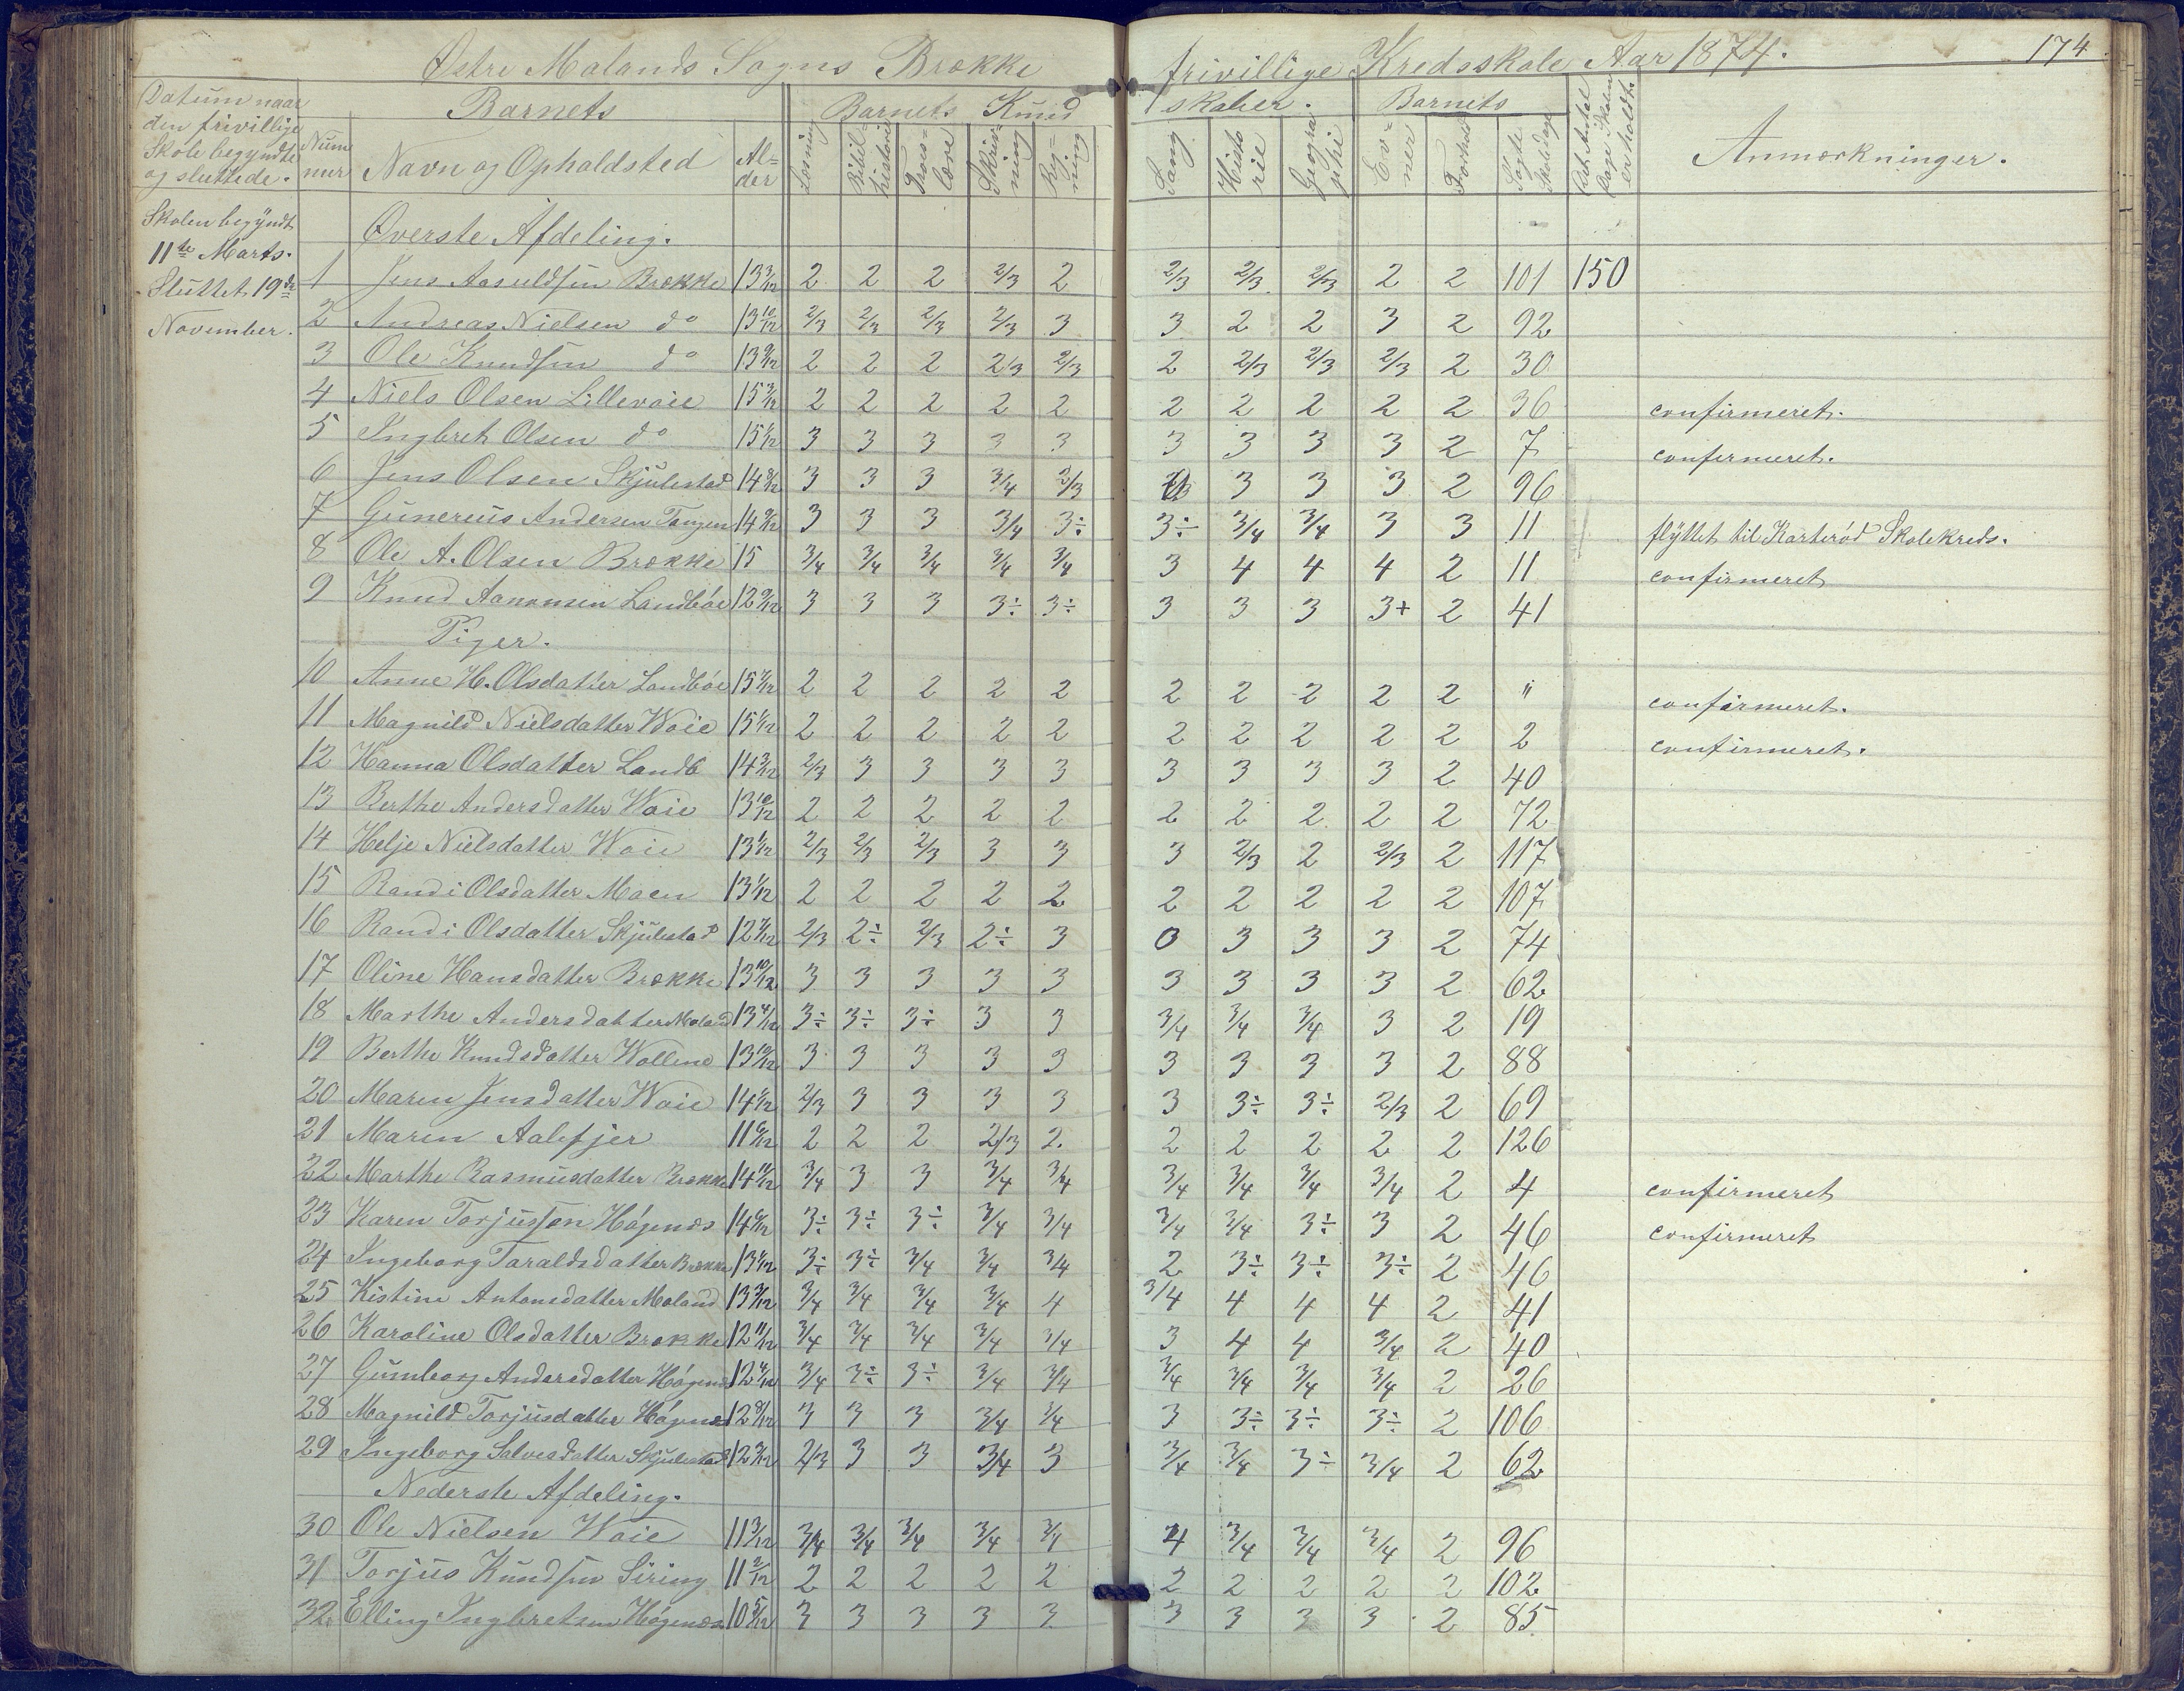 Østre Molands Sogns Brække frivillige Kredsskole Aar 1874. 174
Datum naar den frivillige Skole begyndte og sluttede.
Barnets
Num̄mer Navn og Opholdsted Alder
Barnets Kundskaber.
Læsning Bibelhistorie Troeslære Skrivning Regning Sang Historie Geographi
Barnets
Evner Forhold Søgte Skoledage Det Antal Dage Skolen er holdt.
Anmærkninger.
Skolen begyndt
11te Marts.
Sluttet 19de
November.
Øverste Afdeling.
1 Jens Aasuldsen Brække 13 3/12 2 2 2 2/3 2 2/3 2/3 2/3 2 2 101 150
2 Andreas Nielsen do 13 10/12 2/3 2/3 2/3 2/3 3 3 2 2 3 2 92
3 Ole Knudsen do 13 9/12 2 2 2 2/3 2/3 2 2/3 2/3 2/3 2 30
4 Niels Olsen Lillevoie 15 3/12 2 2 2 2 2 2 2 2 2 2 36 confirmeret.
5 Ingbret Olsen do 15 1/12 3 3 3 3 3 3 3 3 3 2 7 confirmeret.
6 Jens Olsen Skjulestad 14 8/12 3 3 3 3/4 2/3 3 3 3 2 96
7 Gunereus Andersen Tangen 14 9/12 3 3 3 3/4 3÷ 3÷ 3/4 3/4 3 3 11 flyttet til Karterød Skolekreds.
8 Ole A. Olsen Brække 15 3/4 3/4 3/4 3/4 3/4 3 4 4 4 2 11 confirmeret
9 Knud Aanonsen Landbøe 12 9/12 3 3 3 3÷ 3÷ 3 3 3 3+ 2 41
Piger.
10 Anne H. Olsdatter Landbøe 15 7/12 2 2 2 2 2 2 2 2 2 2 " confirmeret.
11 Magnild Nielsdatter Woie 15 1/12 2 2 2 2 2 2 2 2 2 2 2 confirmeret.
12 Hanna Olsdatter Landb 14 3/12 2/3 3 3 3 3 3 3 3 3 2 40
13 Berthe Andersdatter Woie 13 10/12 2 2 2 2 2 2 2 2 2 2 72
14 Helje Nielsdatter Woie 13 1/12 2/3 2/3 2/3 3 3 3 2/3 2 2/3 2 117
15 Randi Olsdatter Moen 13 1/12 2 2 2 2 2 2 2 2 2 2 107
16 Randi Olsdatter Skjulestad 12 7/12 2/3 2÷ 2/3 2÷ 3 0 3 3 3 2 74
17 Oline Hansdatter Brække 13 10/12 3 3 3 3 3 3 3 3 3 2 62
18 Marthe Andersdatter Moland 13 4/12 3÷ 3÷ 3÷ 3 3 3/4 3/4 3/4 3 2 19
19 Berthe Knudsdatter Wollene 13 10/12 3 3 3 3 3 3 3 3 3 2 88
20 Maren Jensdatter Woie 14 1/12 2/3 3 3 3 3 3 3÷ 3÷ 2/3 2 69
21 Maren Aalefjer 11 6/12 2 2 2 2/3 2. 2 2 2 2 2 126
22 Marthe Rasmusdatter Brække 14 11/12 3/4 3 3 3/4 3/4 3/4 3/4 3/4 3/4 2 4 confirmeret
23 Karen Torjussen Høgenæs 14 6/12 3÷ 3÷ 3÷ 3/4 3/4 3/4 3/4 3÷ 3 2 46 confirmeret
24 Ingeborg Taraldsdatter Brække 13 1/12 3÷ 3÷ 3/4 3/4 3/4 2 3÷ 3÷ 3÷ 2 46
25 Kistine Antonsdatter Moland 13 3/12 3/4 3/4 3/4 3/4 4 3/4 4 4 4 2 41
26 Karoline Olsdatter Brække 12 11/12 3/4 3/4 3/4 3/4 3/4 3 4 4 3/4 2 40
27 Gunborg Andersdatter Høgenæs 12 4/12 3/4 3÷ 3÷ 3/4 3/4 3/4 3/4 3/4 3/4 2 26
28 Magnild Torjusdatter Høgenæs 12 8/12 3 3 3 3/4 3/4 3 3÷ 3÷ 3÷ 2 106
29 Ingeborg Salvesdatter Skjulestad 12 3/12 2/3 3 3 3/4 3 3/4 3/4 3÷ 3/4 2 62
Nederste Afdeling.
30 Ole Nielsen Woie 11 3/12 3/4 3/4 3/4 3/4 3/4 4 3/4 3/4 3/4 2 96
31 Torjus Knudsen Siring 11 2/12 2 2 2 2 2 2 2 2 2 2 102
32 Elling Ingbretsen Høgenæs 10 5/12 3 3 3 3 3 3 3 3 3 2 85